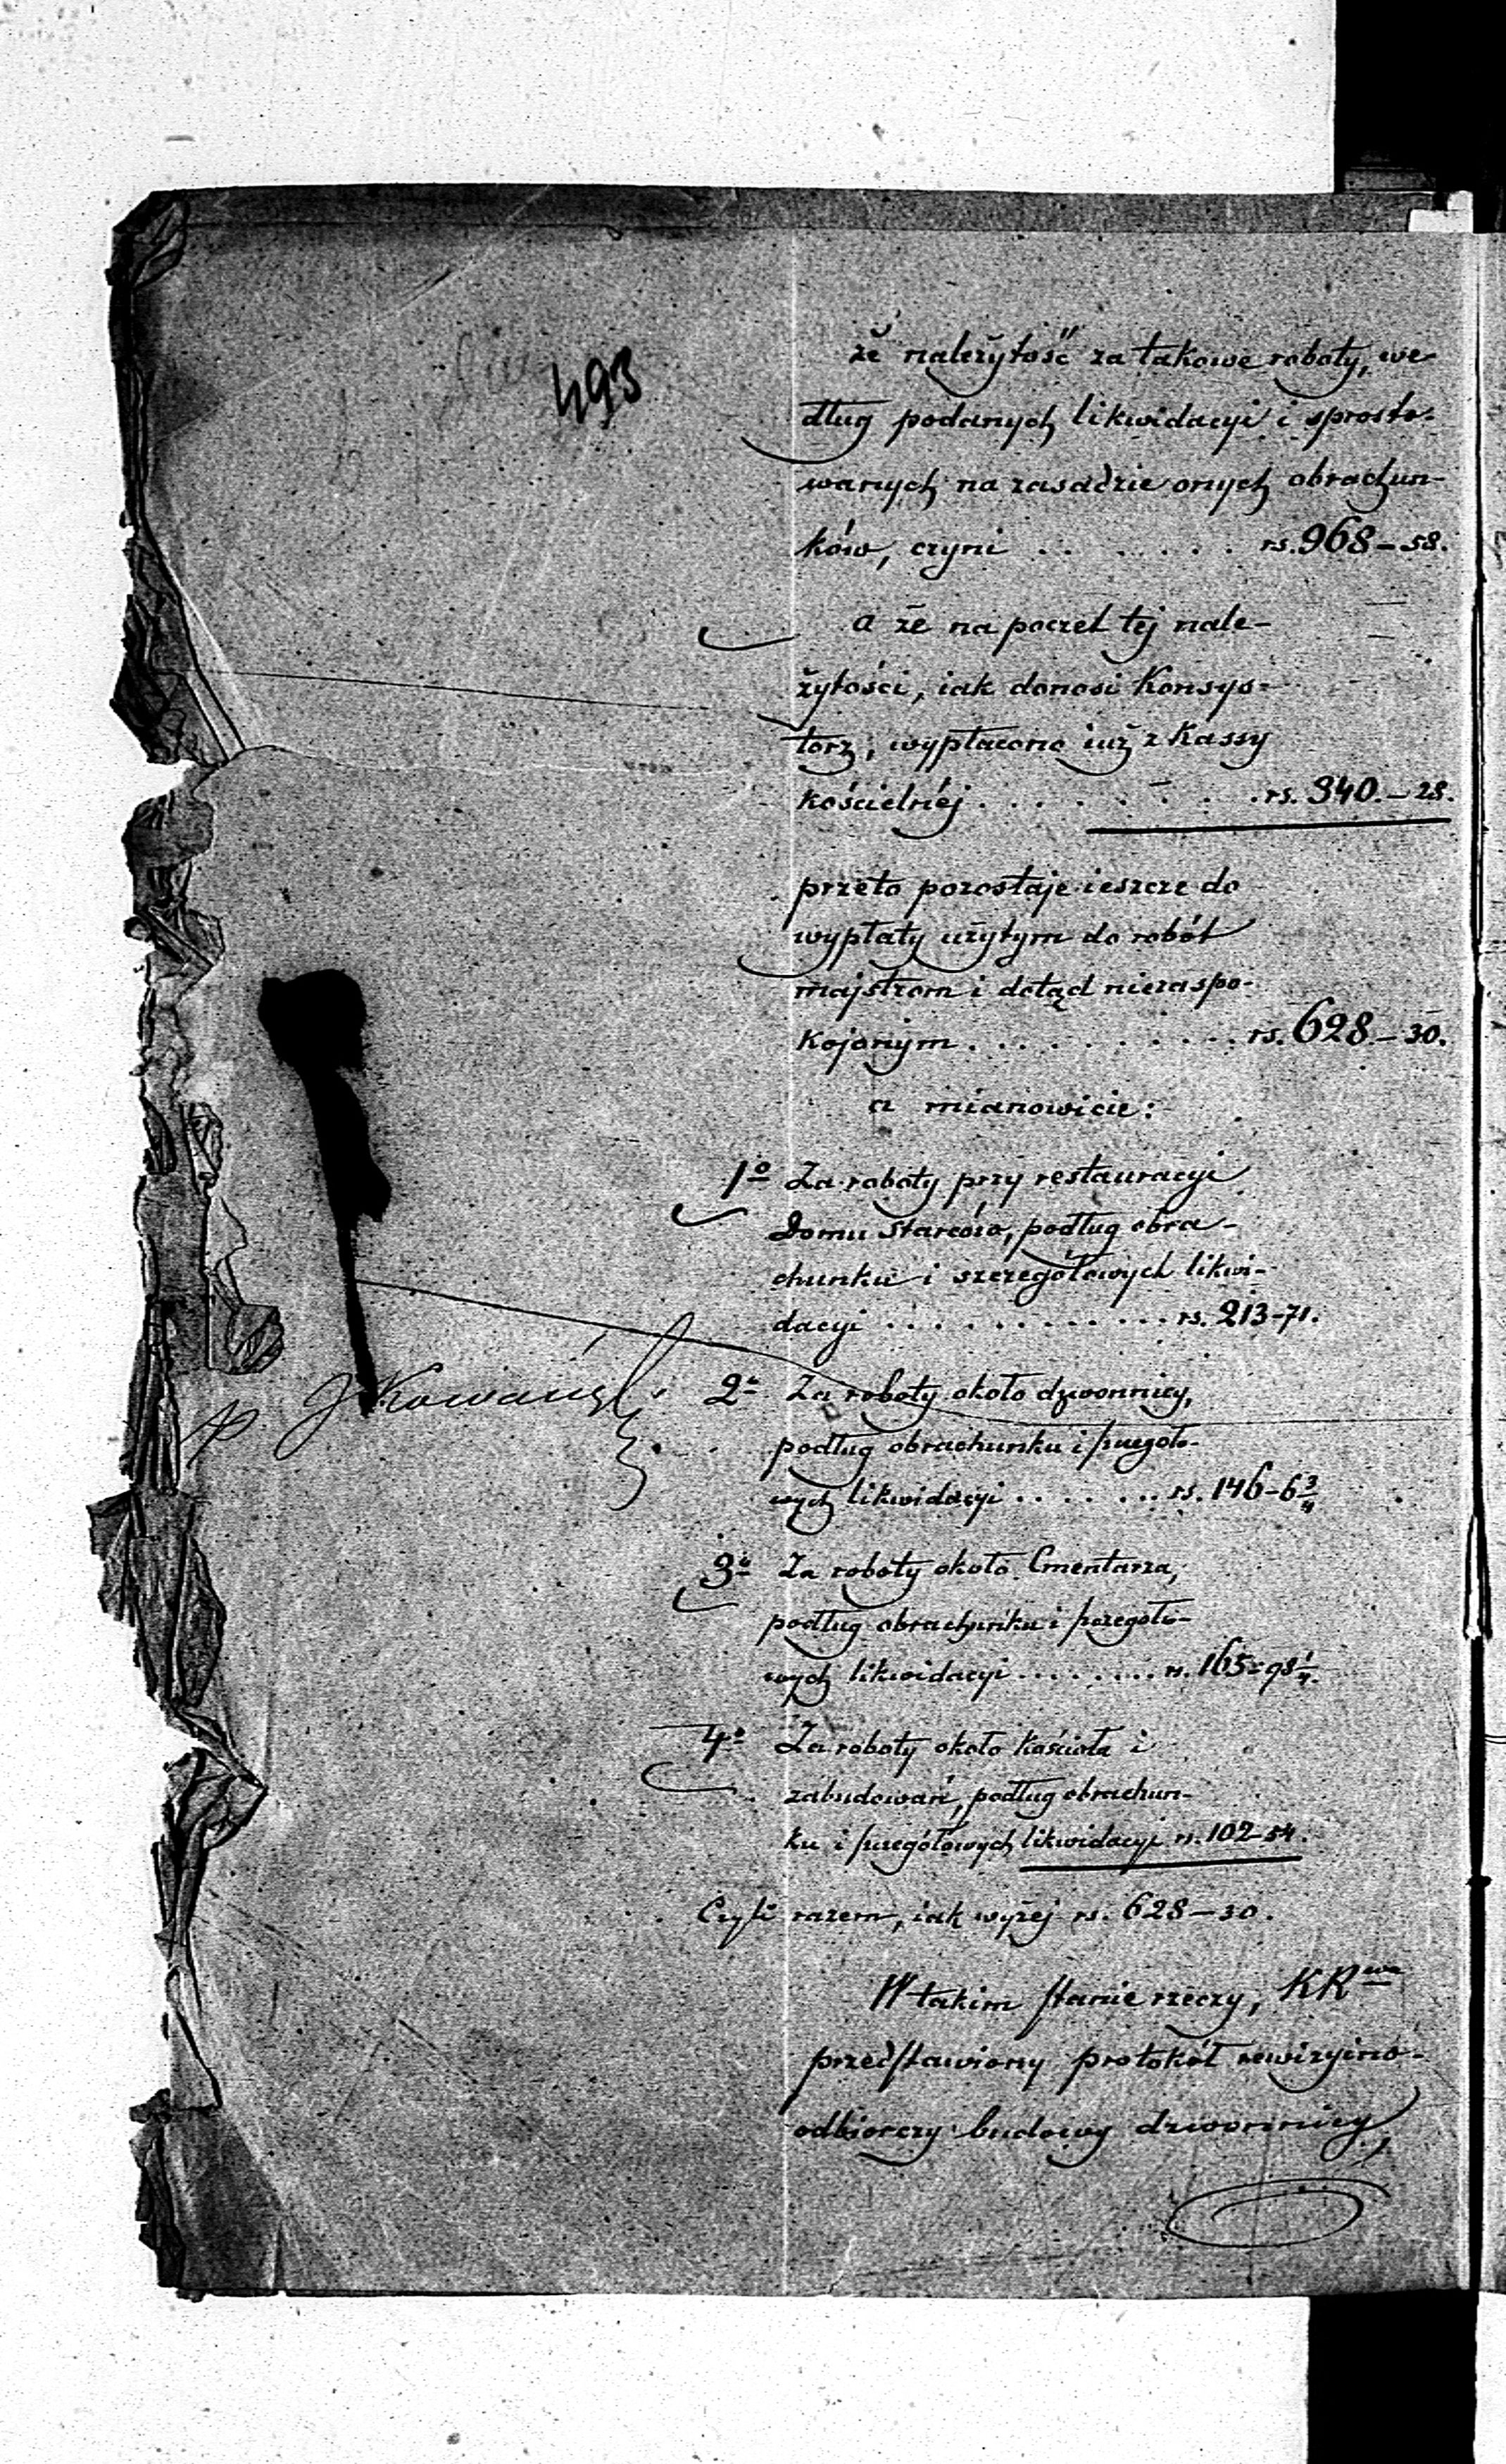 493
że należytość za takowe roboty, we-
dług podanych likwidacyi i sprosto-
wanych na zasadzie onych obrachun-
ków, czyni . . . . . . rs. 968 – 58.
a że na poczet tej nale-
żytości, iak donosi Konsys-
torz, wypłacono iuż z Kassy
kościelnéj . . . . . . . rs. 340. – 28.
przeto pozostaje ieszcze do
wypłaty użytym do robót
majstrom i dotąd niezaspo-
kojonym . . . . . . . . . . rs. 628 – 30.
a mianowicie:
1o Za roboty przy restauracyi
Domu starców, podług obra-
chunku i szczegółowych likwi-
dacyi . . . . . . . . . . . rs. 213–71.
2o Za roboty około dzwonnicy,
podług obrachunku i szczegóło-
wych likwidacyi . . . . . . . rs. 146–6 3/4
3o Za roboty około Cmentarza,
podług obrachunku i szczegóło-
wych likwidacyi . . . . . . . . rs. 165–98 1/4.
4o Za roboty około kościoła i
zabudowań, podług obrachun-
ku i szczegółowych likwidacyi rs. 102–54.
Czyli razem, iak wyżej rs. 628 – 30.
W takim stanie rzeczy, KRwa
przedstawiony protokół rewizyino-
odbiorczy budowy dzwonnicy,